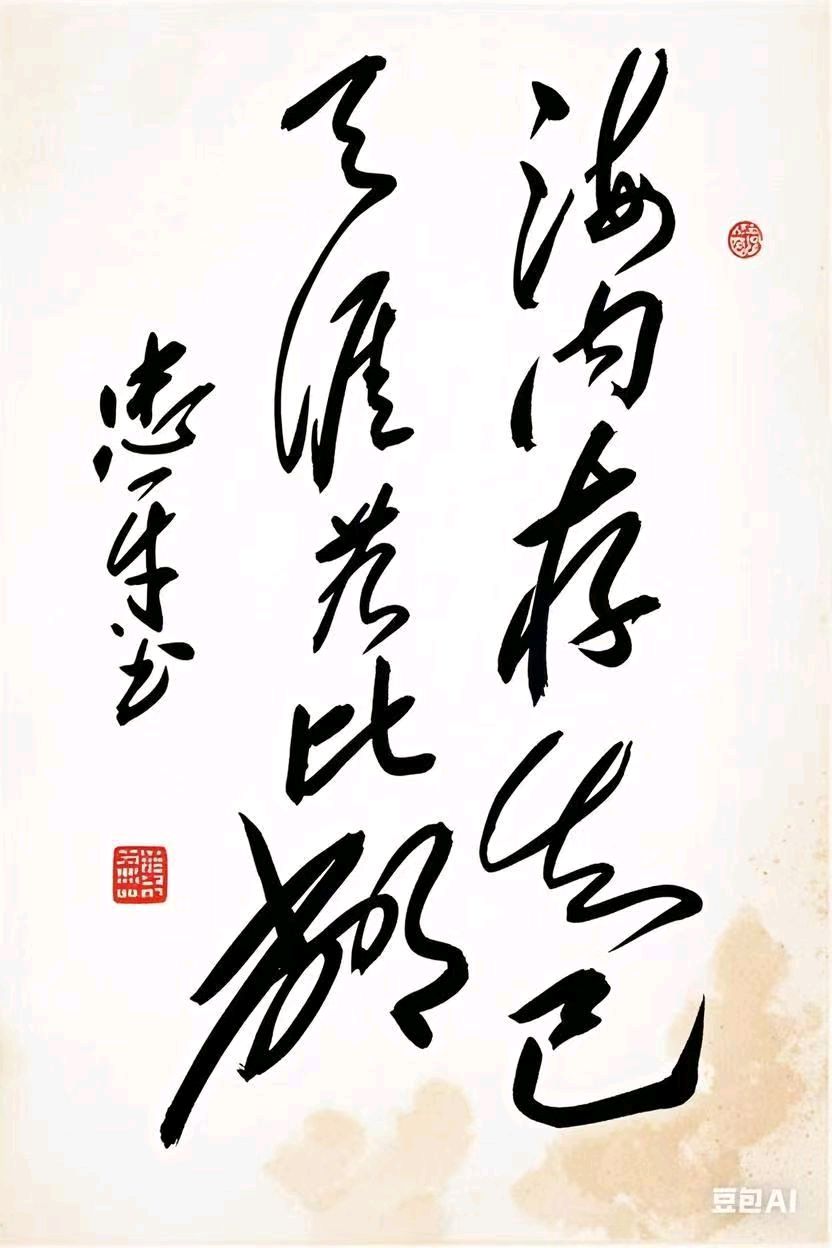 海内存知己
天涯若比邻
忠平书
豆包AI